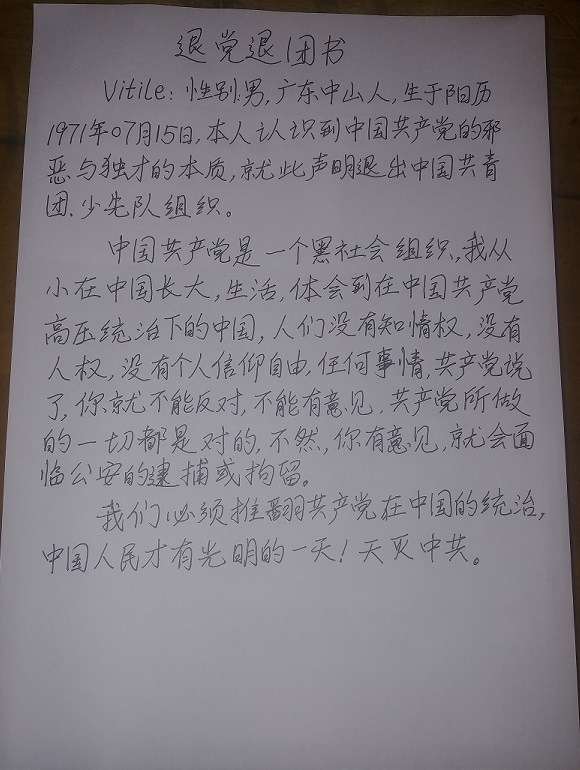 退党退团书
Vitile: 性别:男,广东中山人,生于阳历
1971年07月15日,本人认识到中国共产党的邪
恶与独才的本质,就此声明退出中国共青
团、少先队组织。
中国共产党是一个黑社会组织,我从
小在中国长大,生活,体会到在中国共产党
高压统治下的中国,人们没有知情权,没有
人权,没有个人信仰自由,任何事情,共产党说
了,你就不能反对,不能有意见,共产党所做
的一切都是对的,不然,你有意见,就会面
临公安的逮捕或拘留。
我们必须推翻共产党在中国的统治,
中国人民才有光明的一天!天灭中共。